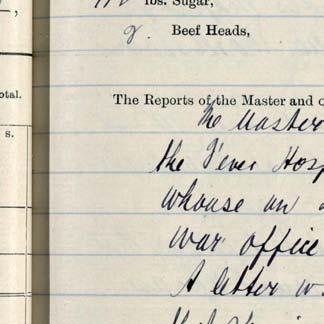 lbs. Sugar,
2. Beef Heads,
otal.
The Reports of the Master and o
s.
The Master
the Fever Hosp
whouse on
war office
A letter w